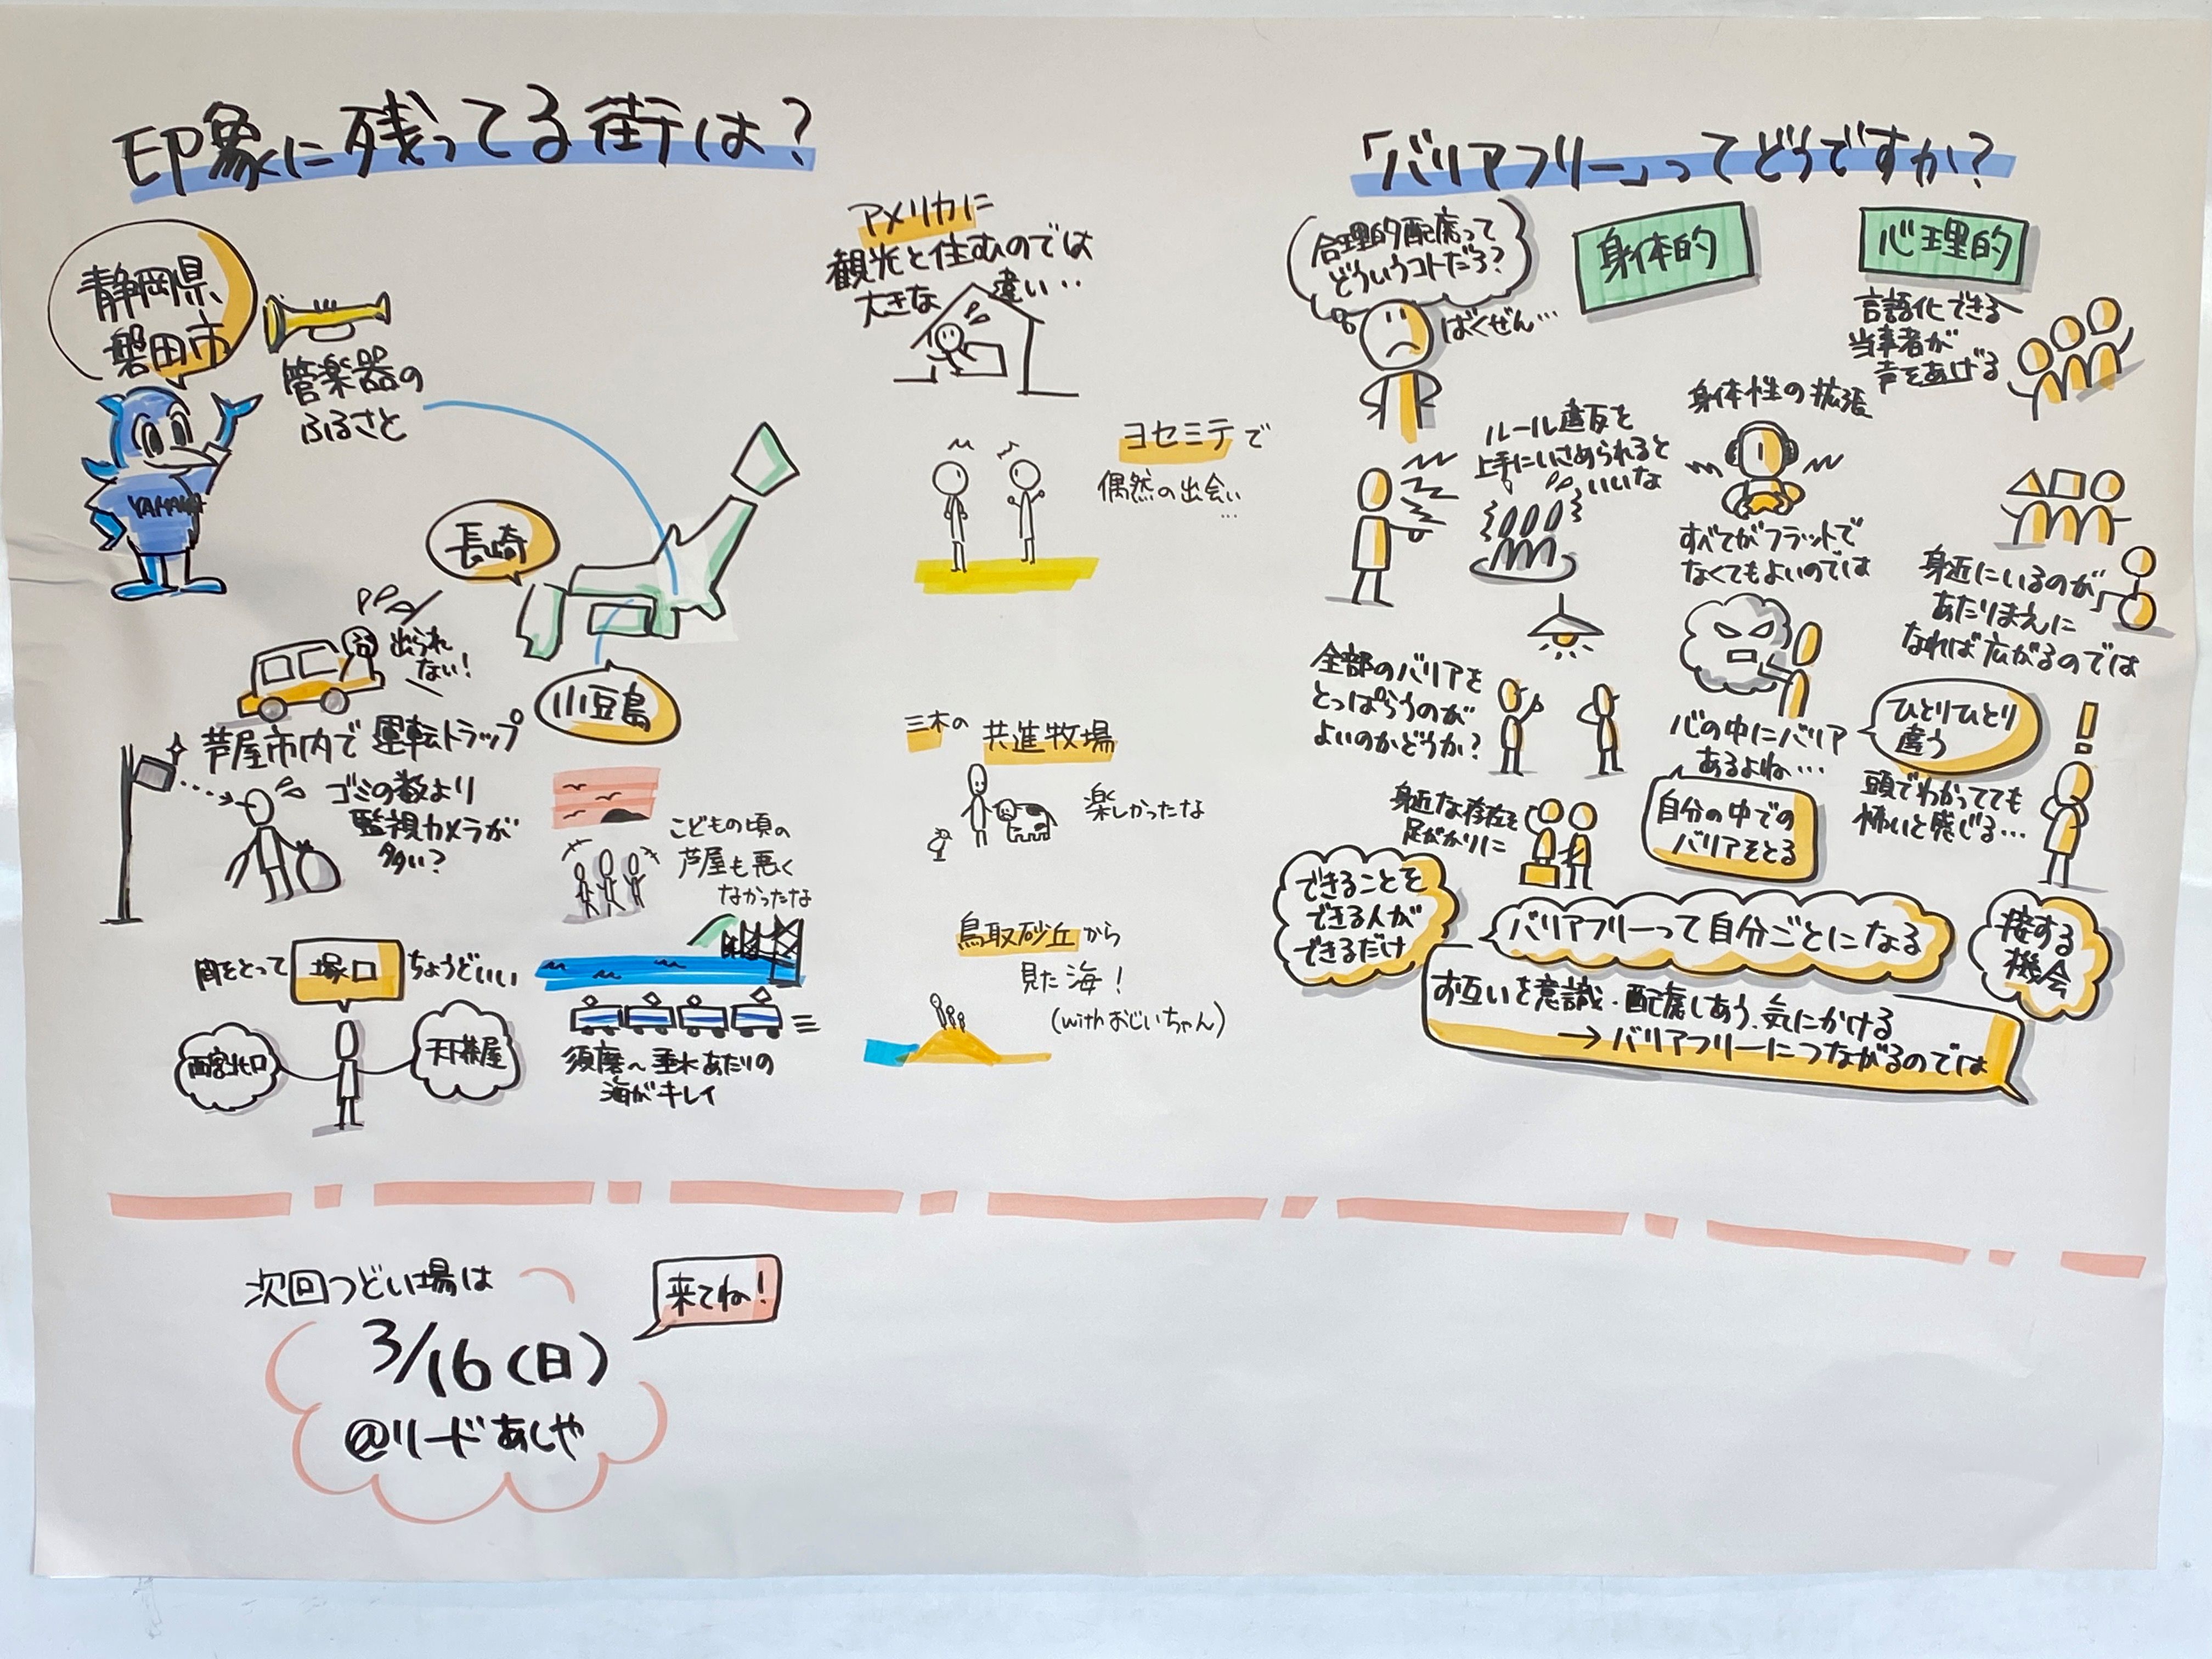 印象に残ってる街は?
静岡県
磐田市
管楽器の
ふるさと
YAMAHA
長崎
小豆島
出られ
ない!
芦屋市内で運転トラップ
ゴミの数より
監視カメラが
多い?
こどもの頃の
芦屋も悪く
なかったな
間をとって
塚口
ちょうどいい
西宮北口
天下茶屋
須磨〜垂水あたりの
海がキレイ
アメリカに
観光と住むのでは
大きな違い‥
ヨセミテで
偶然の出会い
…
三木の共進牧場
楽しかったな
鳥取砂丘から
見た海!
(withおじいちゃん)
「バリアフリー」ってどうですか?
合理的配慮って
どういうコトだろ?
ばくぜん…
身体的
心理的
言語化できる
当事者が
声をあげる
ルール違反を
上手にいさめられると
いいな
身体性の拡張
すべてがフラットで
なくてもよいのでは
身近にいるのが
あたりまえに
なれば広がるのでは
全部のバリアを
とっぱらうのが
よいのかどうか?
心の中にバリア
あるよね…
ひとりひとり
違う
頭でわかってても
怖いと感じる…
身近な存在を
足がかりに
自分の中での
バリアをとる
できることを
できる人が
できるだけ
バリアフリーって自分ごとになる
接する
機会
お互いを意識・配慮しあう、気にかける
→バリアフリーにつながるのでは
次回つどい場は
3/16(日)
@リードあしや
来てね!